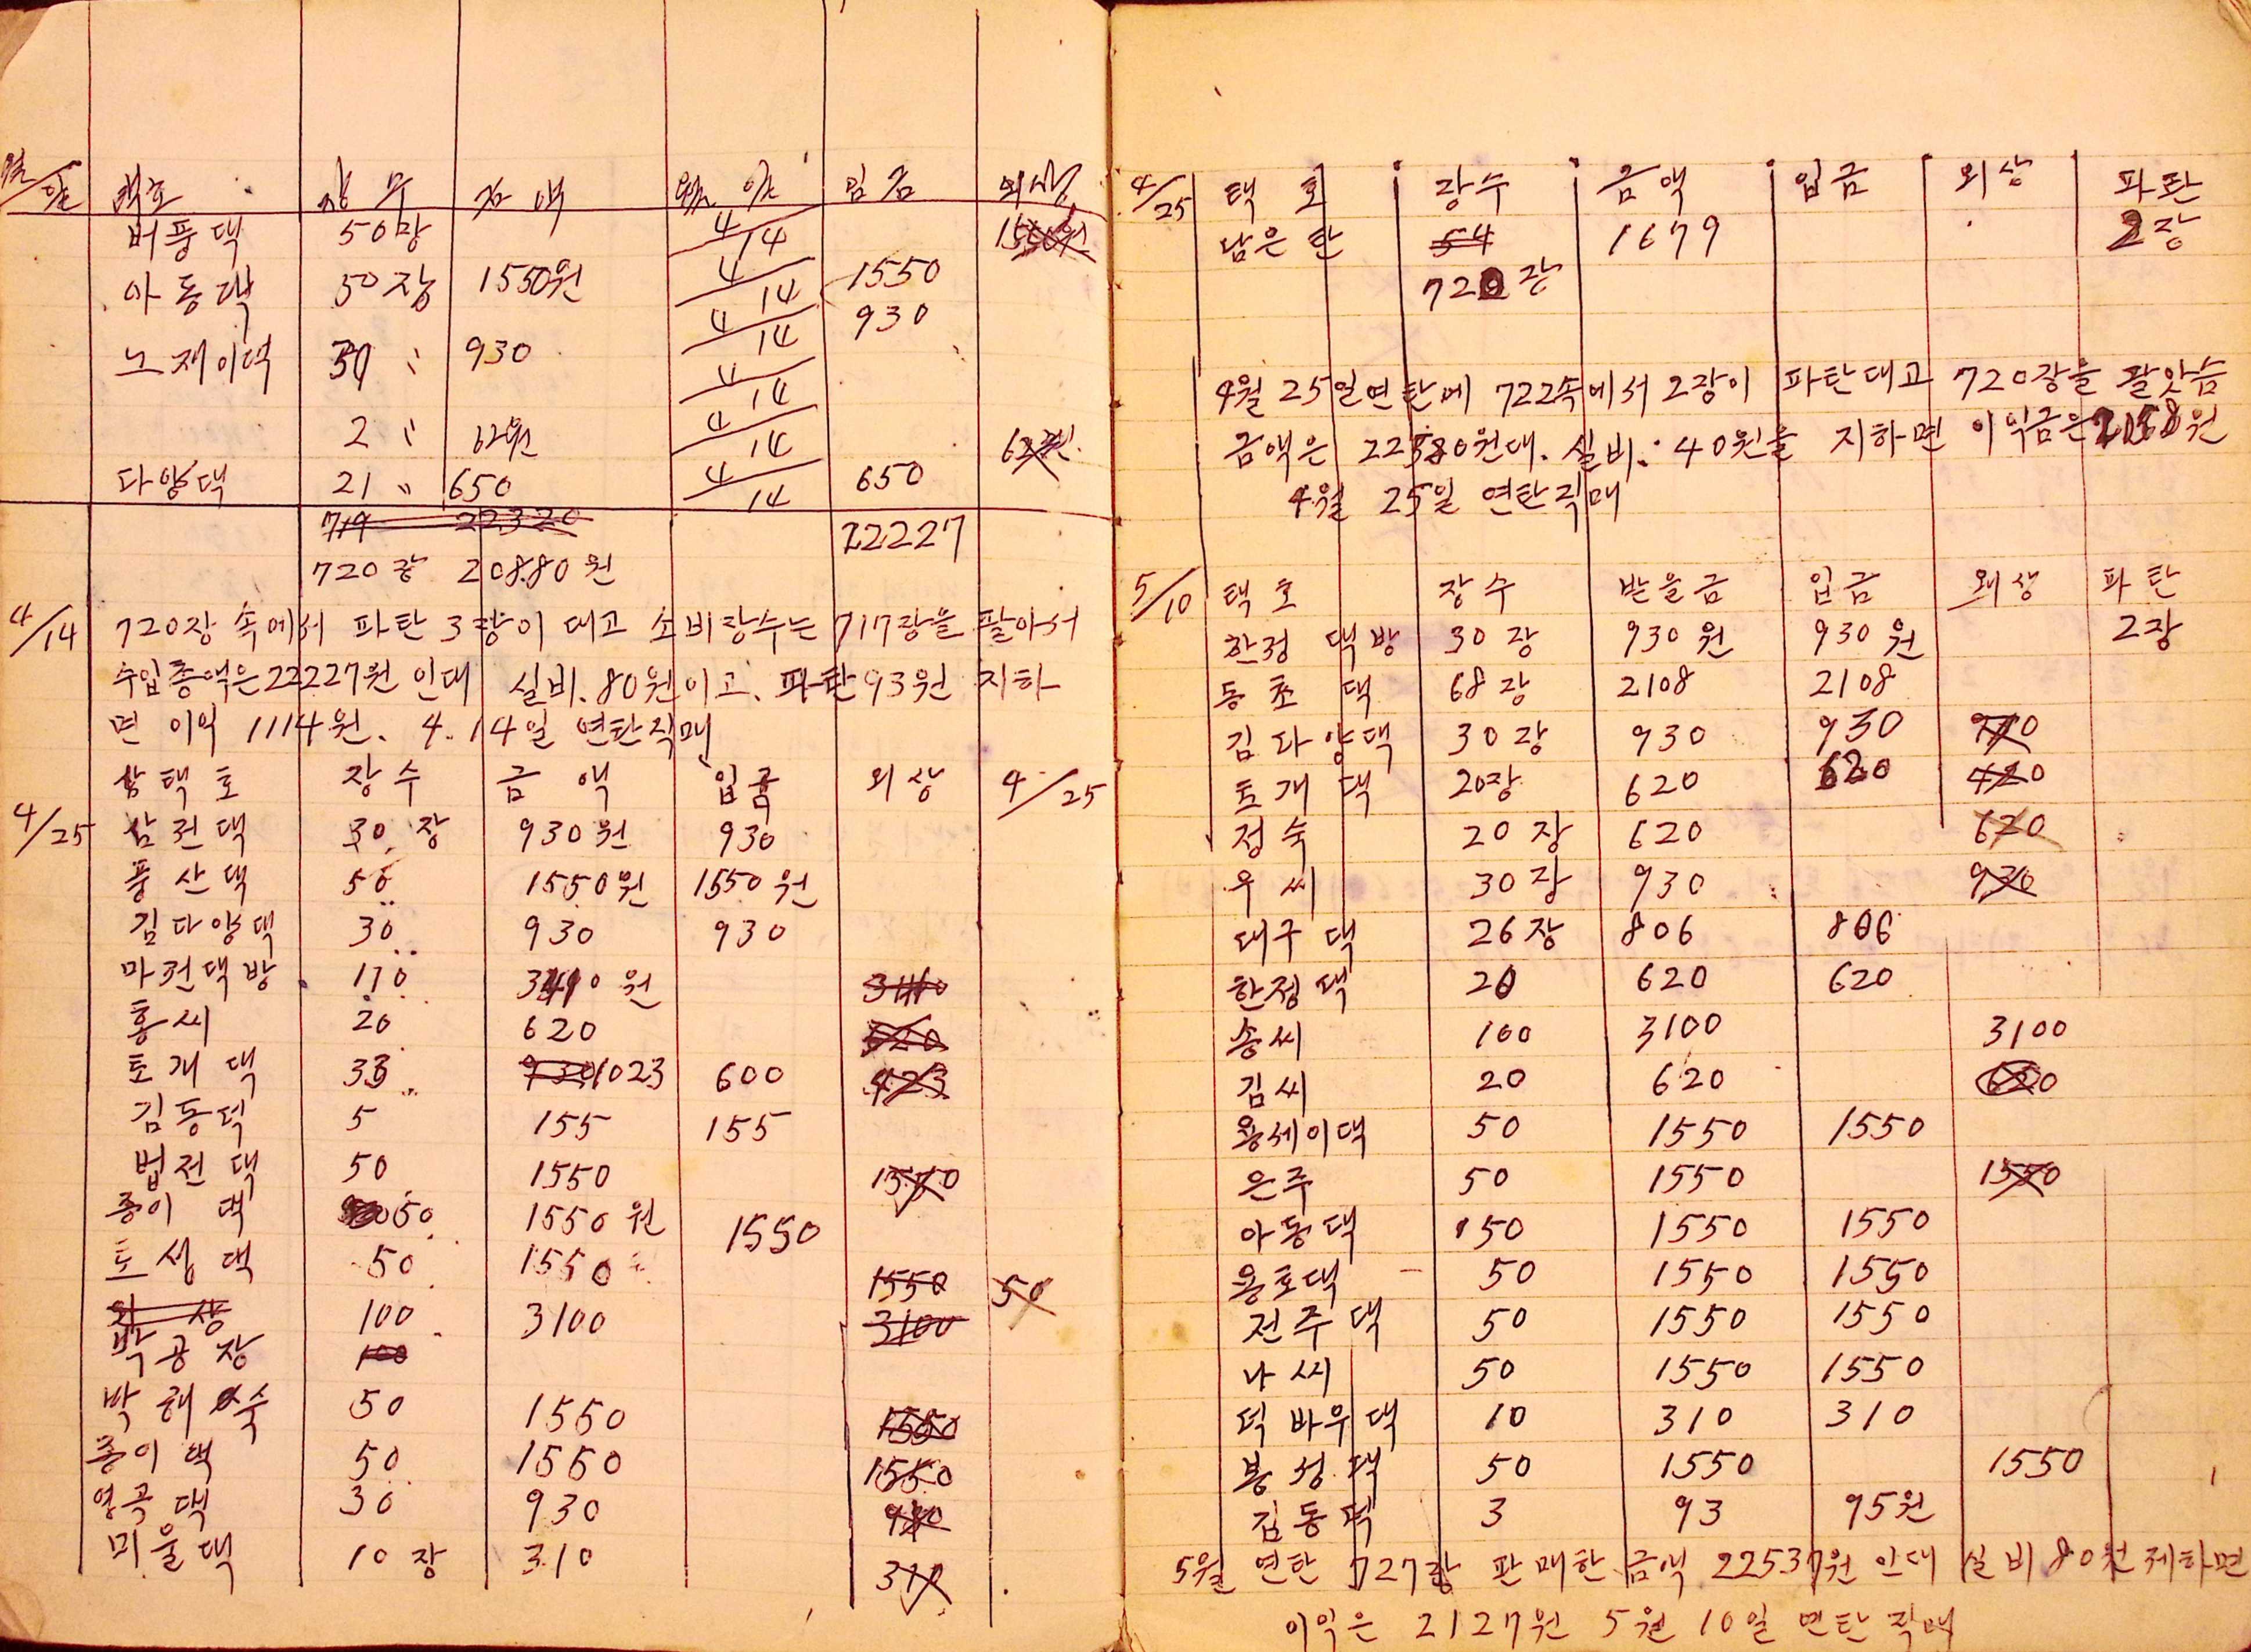 월/일 택호 장수 금액 월일 입금 외상
버풍댁 50장 4/14 1550원
아동댁 50장 1550원 4/14 1550
노재이댁 30 〃 930 4/14 930
4/14
2 〃 62원 4/14 62원
다양댁 21 〃 650 4/14 650
719 22320 22227
720장 20880원
4/14 720장 속에서 파탄 3장이 대고 소비장수는 717장을 팔아서
수입총액은 22227원 인대 실비.80원이고. 파탄 93원 지하
면 이익 1114원. 4.14일 연탄직매
택호 장수 금액 입금 외상 4/25
4/25 삼전댁 30장 930원 930
풍산댁 50 1550원 1550원
김다양댁 30 930 930
마전댁방 110 3410원 3410
홍씨 20 620 620
토개댁 33 930 1023 600 423
김동덕 5 155 155
법전댁 50 1550 1550
종이댁 50 1550원 1550
토성댁 50 1550 1550 50
외상 100 3100 3100
박공장 100
박해숙 50 1550 1550
종이댁 50 1550 1550
영곡댁 30 930 930
미울댁 10장 310 310
4/25 택호 장수 금액 입금 외상 파탄
남은탄 54 1679 2장
720장
4월 25일연탄에 722속에서 2장이 파탄대고 720장을 팔앗슴
금액은 22380원대. 실비.40원을 지하면 이익금은 2158원
4월 25일 연탄직매
5/10 택호 장수 받을금 입금 왜생 파탄
한정댁방 30장 930원 930원 2장
동초댁 68장 2108 2108
김다양댁 30장 930 930
토개댁 20장 620 620 420
정숙 20장 620 620
우씨 30장 930 930
대구댁 26장 806 806
한정댁 20 620 620
송씨 100 3100 3100
김씨 20 620 620
용세이댁 50 1550 1550
은주 50 1550 1550
아동댁 50 1550 1550
용호댁 50 1550 1550
전주댁 50 1550 1550
나씨 50 1550 1550
덕바우댁 10 310 310
봉성댁 50 1550 1550
김동덕 3 93 95원
5월 연탄 727장 판매한 금액 22537원 인대 실비 80원 제하면
이익은 2127원 5월 10일 연탄 직매